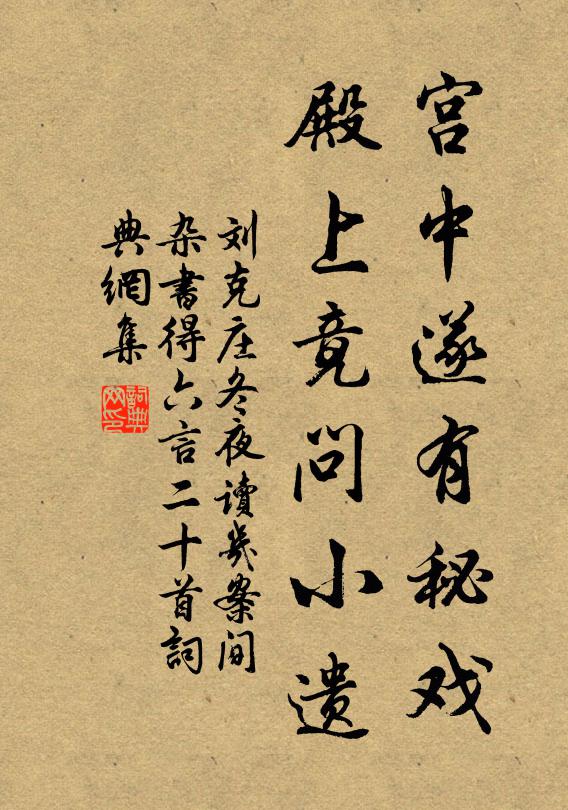 宫中遂有秘戏
殿上竟问小遗
刘克庄冬夜读几案间
杂书得六言二十首詞
典網集
詞典
网印